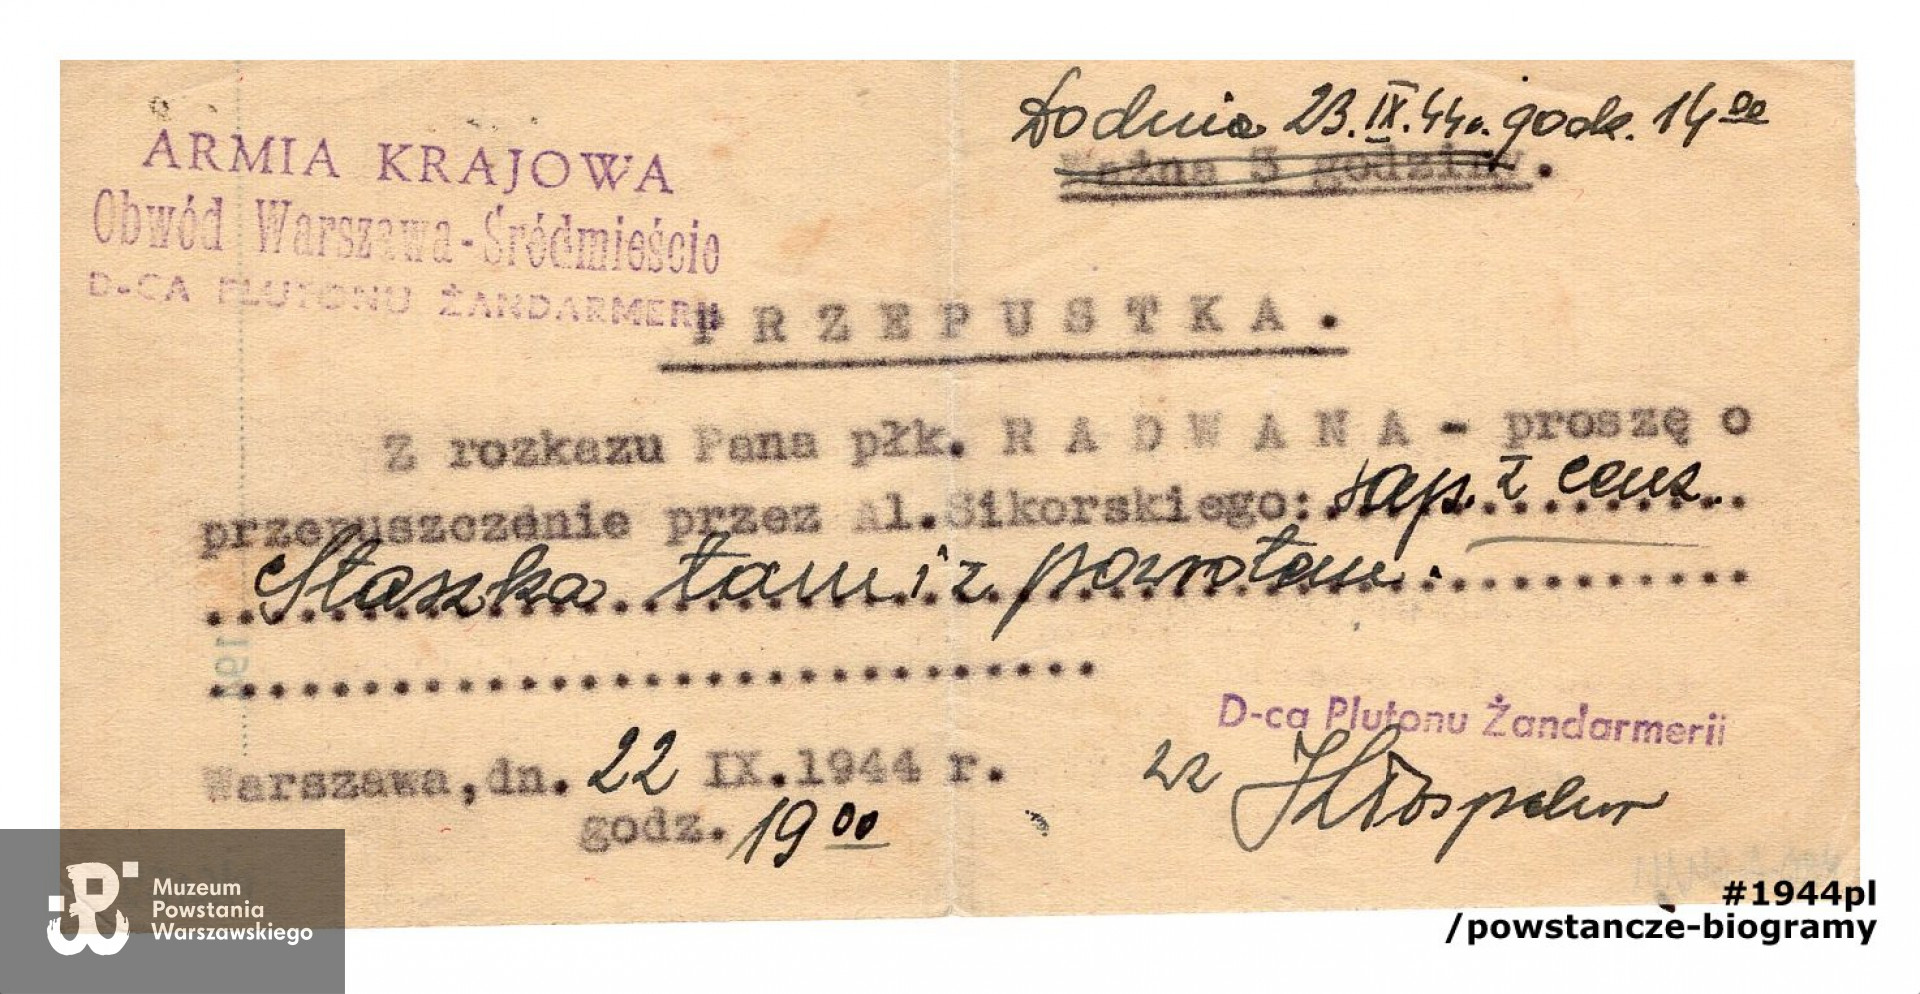 Do dnia 23.IX.44r. godz. 14 00
Ważna 3 godziny.
ARMIA KRAJOWA
Obwód Warszawa-Śródmieście
D-CA PLUTONU ŻANDARMERII
PRZEPUSTKA.
Z rozkazu Pana płk. RADWANA - proszę o
przepuszczenie przez Al.Sikorskiego: sap. z cenz.
Staszka tam i z powrotem.
D-ca Plutonu Żandarmerii
Warszawa, dn. 22 IX.1944 r.
zz
godz. 19 00
Muzeum
Powstania
Warszawskiego
#1944pl
/powstancze-biogramy